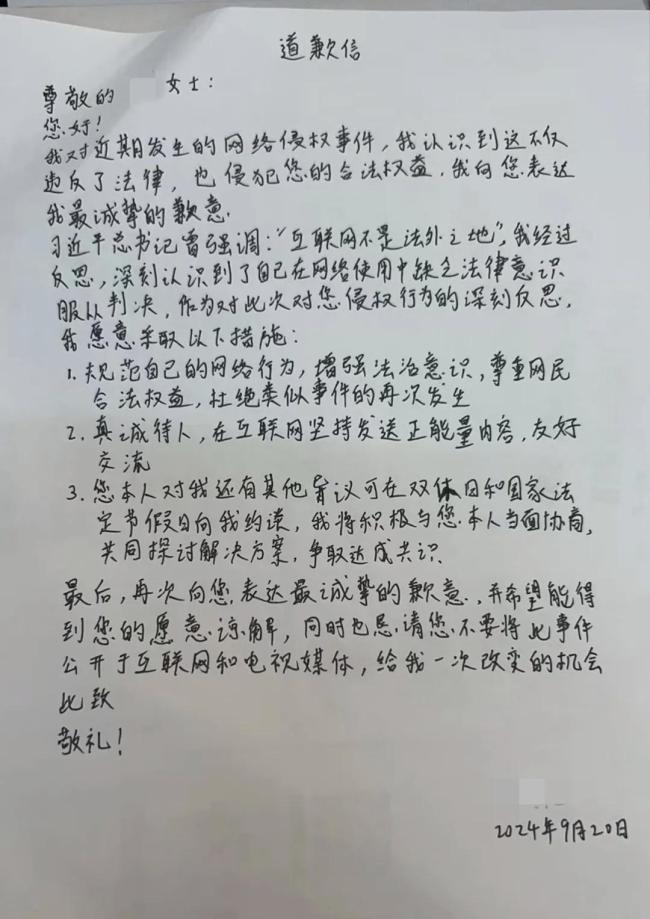 道歉信
尊敬的 女士：
您好！
我对近期发生的网络侵权事件，我认识到这不仅
违反了法律，也侵犯您的合法权益，我向您表达
我最诚挚的歉意.
习近平总书记曾强调：“互联网不是法外之地”，我经过
反思，深刻认识到了自己在网络使用中缺乏法律意识
服从判决，作为对此次对您侵权行为的深刻反思，
我愿意采取以下措施：
1. 规范自己的网络行为，增强法治意识，尊重网民
合法权益，杜绝类似事件的再次发生
2. 真诚待人，在互联网坚持发送正能量内容，友好
交流
3. 您本人对我还有其他异议可在双休日和国家法
定节假日向我约谈，我将积极与您本人当面协商，
共同探讨解决方案，争取达成共识.
最后，再次向您表达最诚挚的歉意，并希望能得
到您的愿意谅解，同时也恳请您不要将此事件
公开于互联网和电视媒体，给我一次改变的机会
此致
敬礼！
2024年9月20日